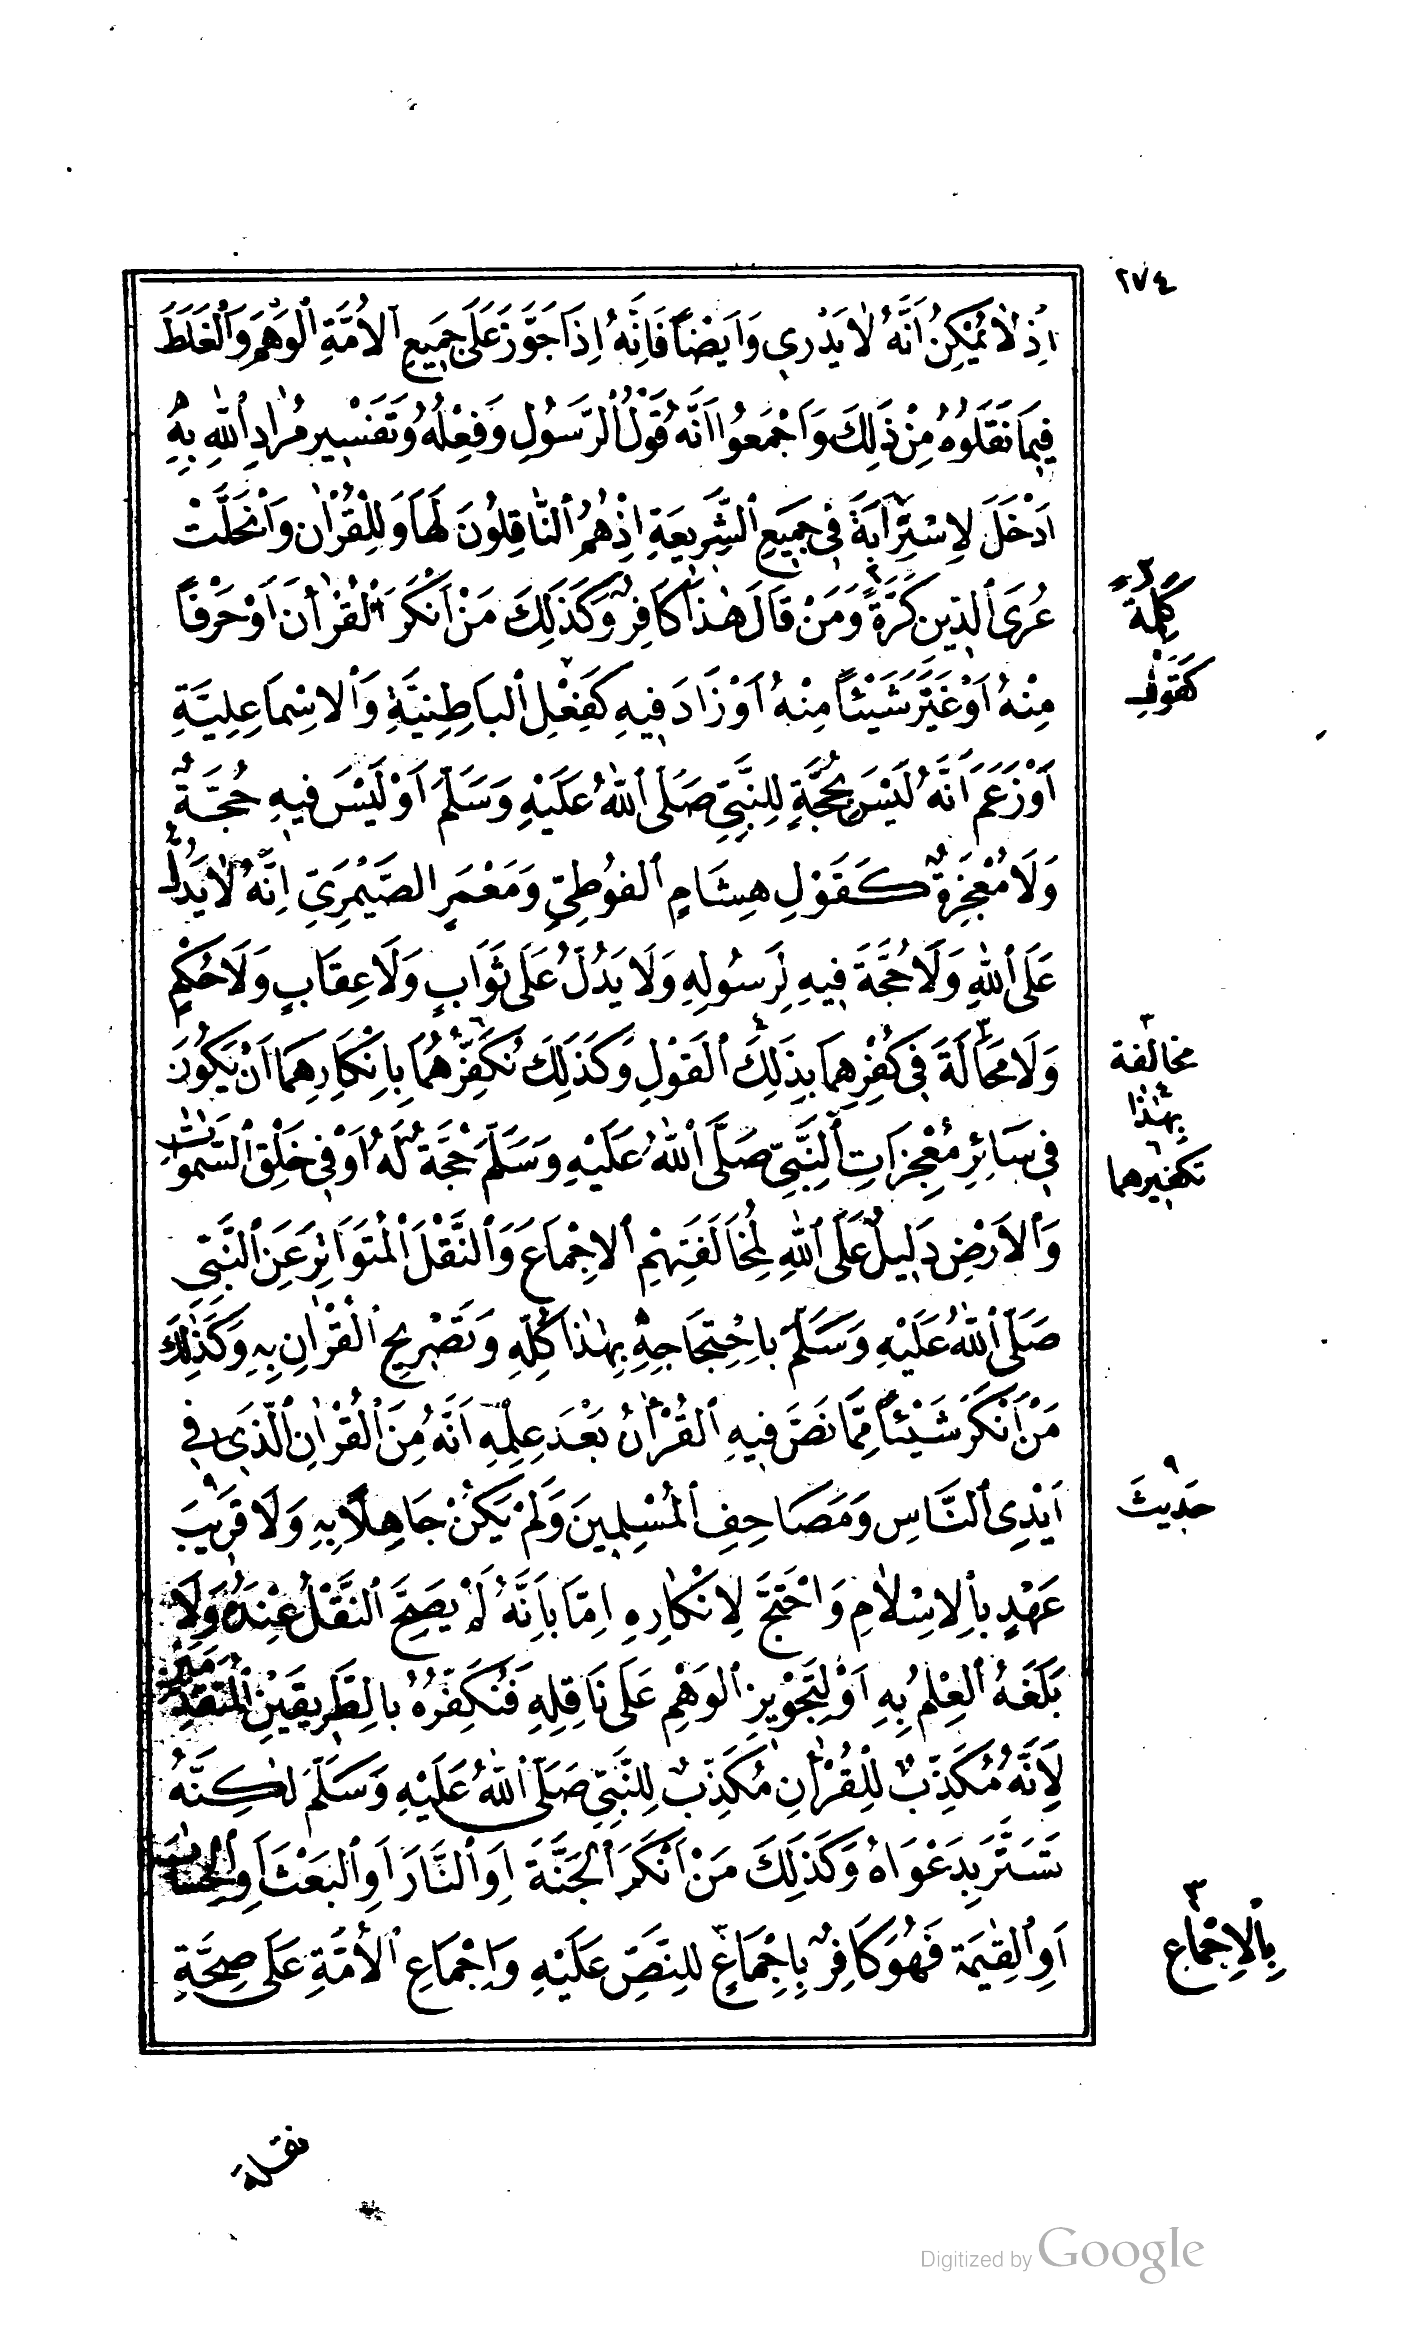 ٢٧٤
اِذْ لَا يُمْكِنُ اَنَّهُ لَا يَدْرِي وَاَيْضًا فَاِنَّهُ اِذَا جَوَّزَ عَلَى جَمِيعِ الْاُمَّةِ الْوَهْمَ وَالْغَلَطَ
فِيمَا نَقَلُوهُ مِنْ ذَلِكَ وَاَجْمَعُوا اَنَّهُ قَوْلُ الرَّسُولِ وَفِعْلُهُ وَتَفْسِيرُ مُرَادِ اللهِ بِهِ
اَدْخَلَ لِاسْتِرَابَةَ فِي جَمِيعِ الشَّرِيعَةِ اِذْ هُمُ النَّاقِلُونَ لَهَا وَلِلْقُرْاٰنِ وَانْحَلَّتْ
عُرَى الدِّينِ كَرَّةً وَمَنْ قَالَ هٰذَا كَافِرٌ وَكَذَلِكَ مَنْ اَنْكَرَ الْقُرْاٰنَ اَوْ حَرْفًا
مِنْهُ اَوْ غَيَّرَ شَيْئًا مِنْهُ اَوْ زَادَ فِيهِ كَفِعْلِ الْبَاطِنِيَّةِ وَالْاِسْمَاعِلِيَّةِ
اَوْ زَعَمَ اَنَّهُ لَيْسَ بِحُجَّةٍ لِلنَّبِيِّ صَلَّى اللهُ عَلَيْهِ وَسَلَّمَ اَوْ لَيْسَ فِيهِ حُجَّةٌ
وَلَا مُعْجِزَةٌ كَقَوْلِ هِشَامٍ الفُوطِيِّ وَمَعْمَرٍ الصَّيْمَرِيِّ اِنَّهُ لَا يَدُلُّ
عَلَى اللهِ وَلَا حُجَّةَ فِيهِ لِرَسُولِهِ وَلَا يَدُلُّ عَلَى ثَوَابٍ وَلَا عِقَابٍ وَلَا حُكْمٍ
وَلَا مَحَالَةَ فِي كُفْرِهِمَا بِذَلِكَ الْقَوْلِ وَكَذَلِكَ نُكَفِّرُهُمَا بِاِنْكَارِهِمَا اَنْ يَكُونَ
فِي سَائِرِ مُعْجِزَاتِ النَّبِيِّ صَلَّى اللهُ عَلَيْهِ وَسَلَّمَ حُجَّةٌ لَهُ اَوْ فِي خَلْقِ السَّمٰوَاتِ
وَالْاَرْضِ دَلِيلٌ عَلَى اللهِ لِمُخَالَفَتِهِمُ الْاِجْمَاعَ وَالنَّقْلَ الْمُتَوَاتِرَ عَنِ النَّبِيِّ
صَلَّى اللهُ عَلَيْهِ وَسَلَّمَ بِاحْتِجَاجِهِ بِهٰذَا كُلِّهِ وَتَصْرِيحِ الْقُرْاٰنِ بِهِ وَكَذٰلِكَ
مَنْ اَنْكَرَ شَيْئًا مِمَّا نَصَّ فِيهِ الْقُرْاٰنُ بَعْدَ عِلْمِهِ اَنَّهُ مِنَ الْقُرْاٰنِ الَّذِي فِي
اَيْدِي النَّاسِ وَمَصَاحِفِ الْمُسْلِمِينَ وَلَمْ يَكُنْ جَاهِلًا بِهِ وَلَا قَرِيبَ
عَهْدٍ بِالْاِسْلَامِ وَاحْتَجَّ لِاِنْكَارِهِ اِمَّا بِاَنَّهُ لَمْ يَصِحَّ النَّقْلُ عِنْدَهُ وَلَا
بَلَغَهُ الْعِلْمُ بِهِ اَوْ لِتَجْوِيزِ الْوَهْمِ عَلَى نَاقِلِهِ فَنُكَفِّرُهُ بِالطَّرِيقَيْنِ الْمُتَقَدِّمَيْنِ
لِاَنَّهُ مُكَذِّبٌ لِلْقُرْاٰنِ مُكَذِّبٌ لِلنَّبِيِّ صَلَّى اللهُ عَلَيْهِ وَسَلَّمَ لٰكِنَّهُ
تَسَتَّرَ بِدَعْوَاهُ وَكَذَلِكَ مَنْ اَنْكَرَ الْجَنَّةَ اَوِ النَّارَ اَوِ الْبَعْثَ اَوِ الْحِسَابَ
اَوِ الْقِيٰمَةَ فَهُوَ كَافِرٌ بِاِجْمَاعٍ لِلنَّصِّ عَلَيْهِ وَاِجْمَاعِ الْاُمَّةِ عَلَى صِحَّةِ
٣
كَلِمَةً
كَقَوْلِ
٣
مخالفة
٤
بِهٰذَا
٦
تكفيرهما
٩
حَدِيثَ
٣
بِالْاِجْمَاعِ
نقله
Digitized by Google